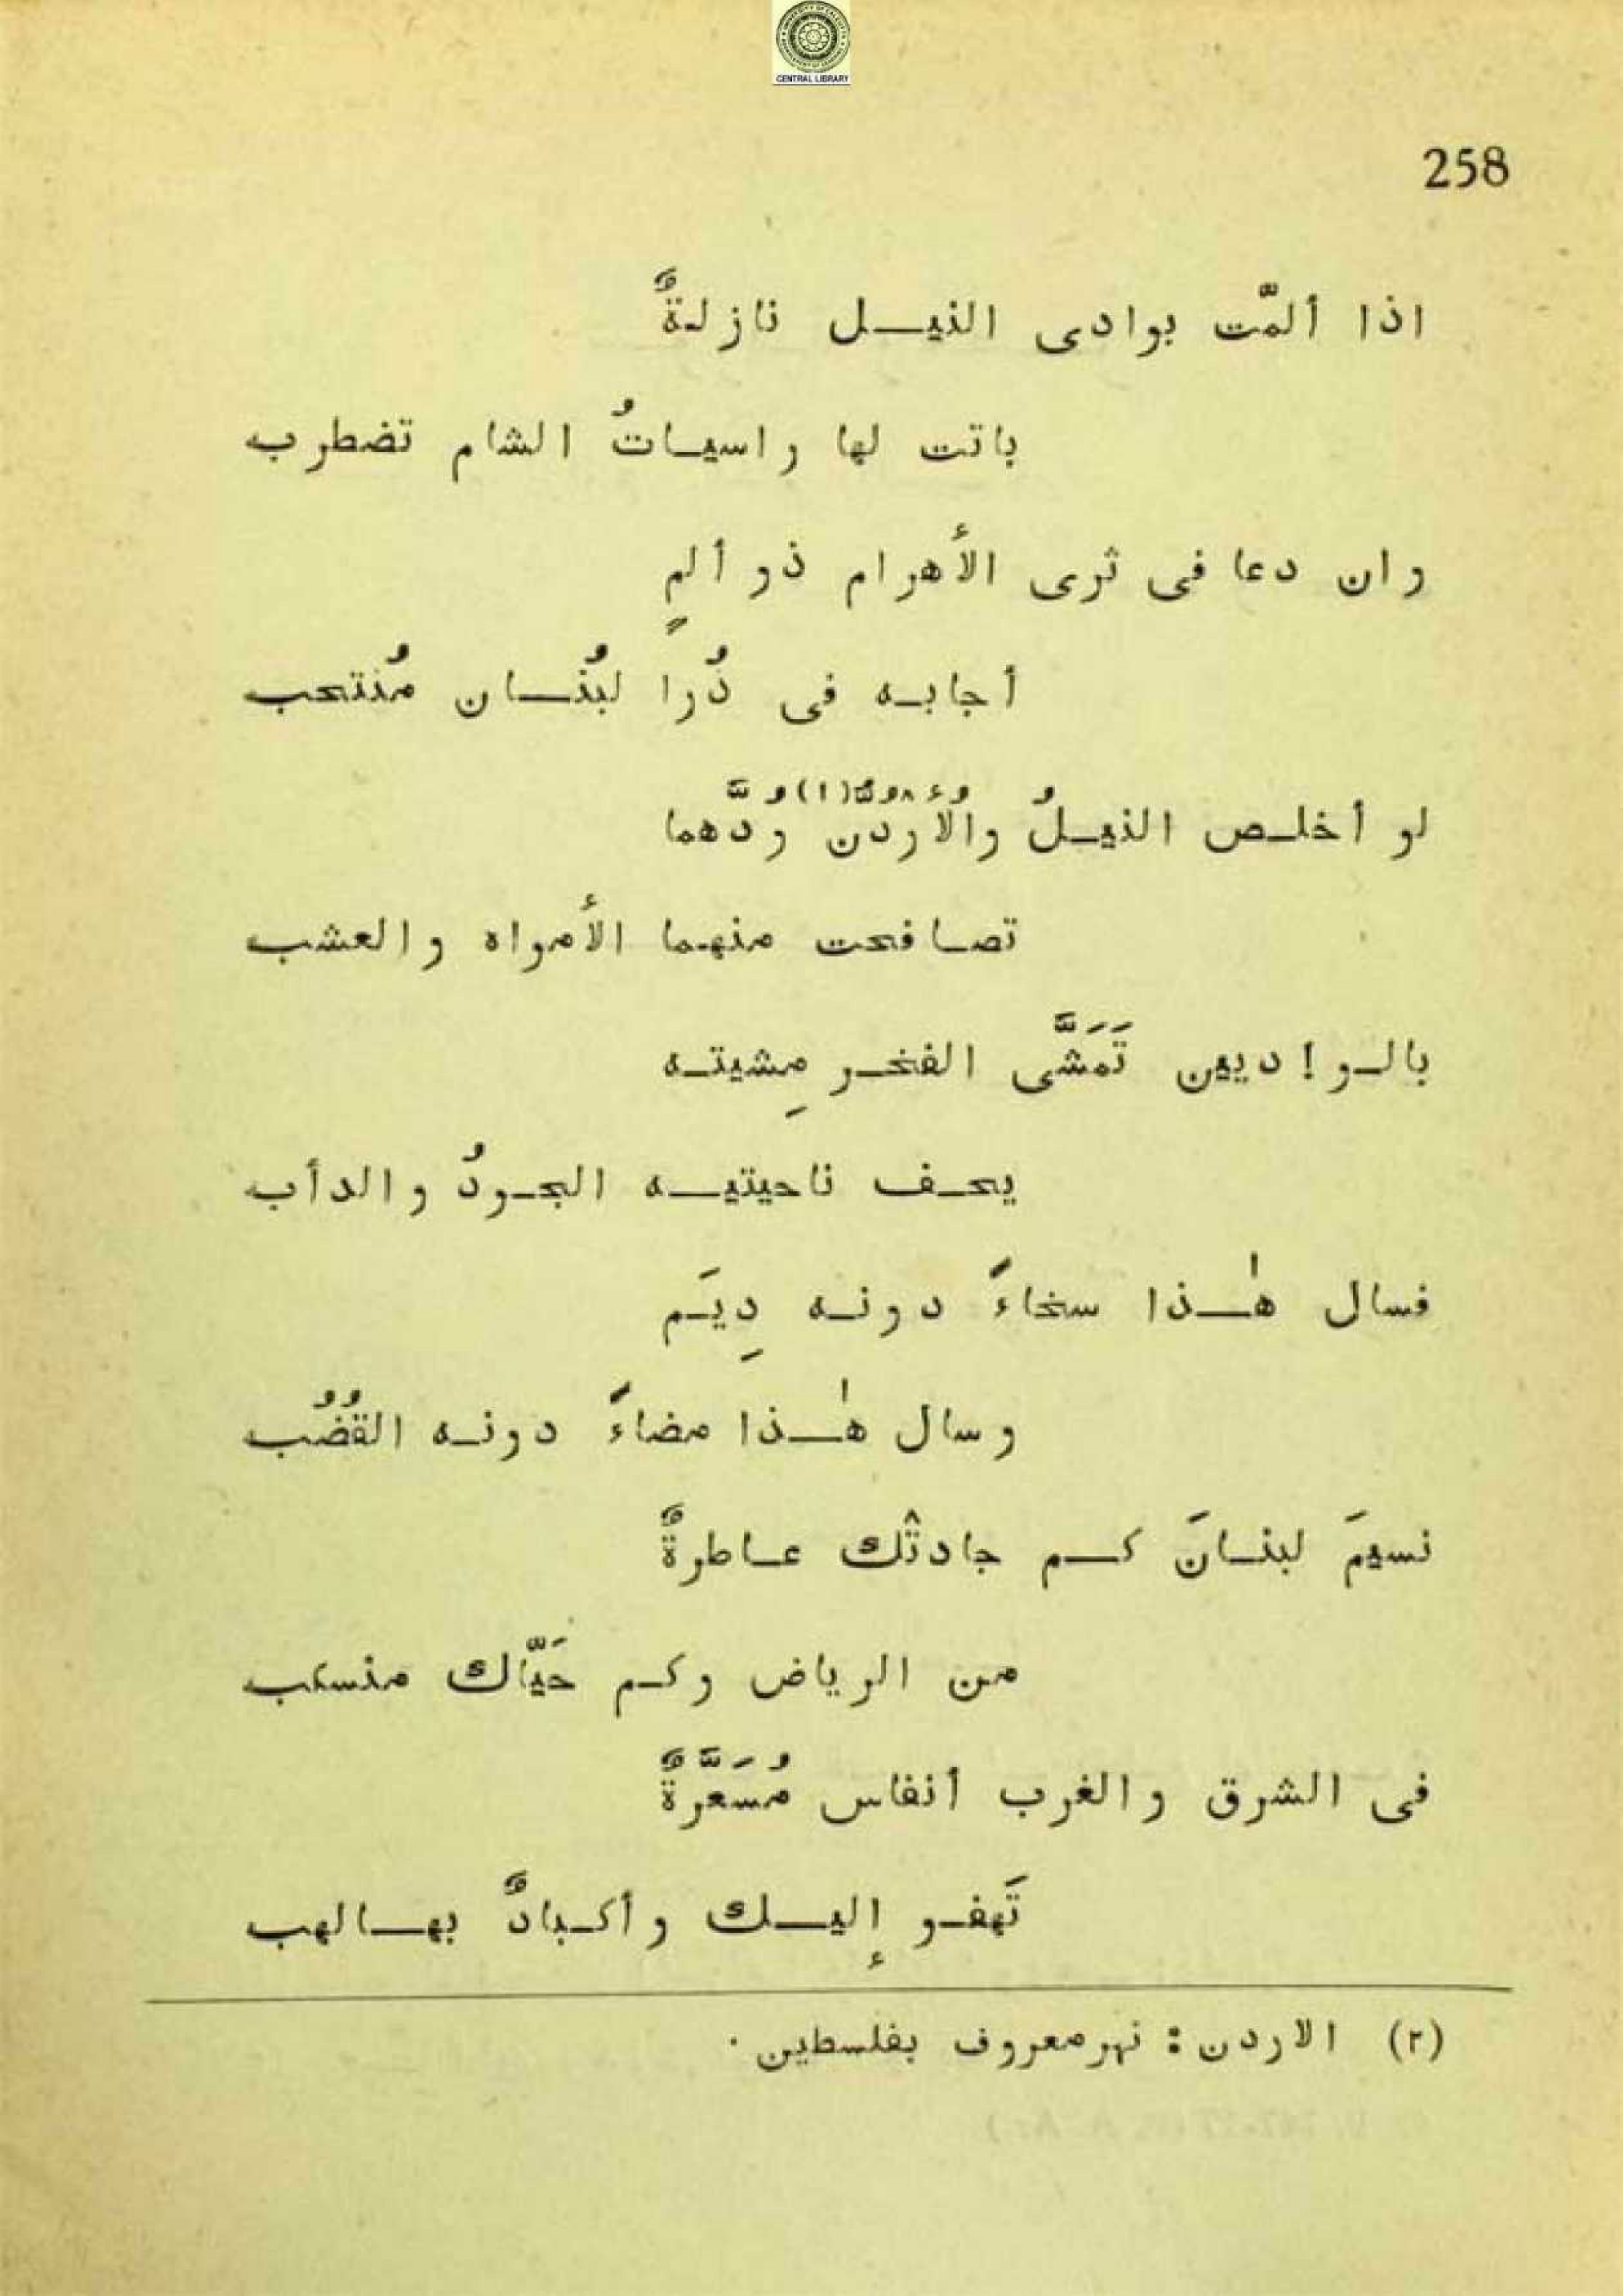 CENTRAL LIBRARY
258
اذا ألمّت بوادى النيـل نازلةٌ
باتت لها راسيـاتُ الشام تضطرب
وان دعا فى ثرى الأهرام ذو ألمٍ
أجابـه فى ذُراً لبُنـان مُنتحب
لو أخلـص النيـلُ والأُردُنُّ(١) وُدَّهما
تصـافحت منهـما الأمواه والعشب
بالـو!ديين تَمَشَّى الفخـر مِشيتـه
يحـف ناحيتيـه الجـودُ والدأب
فسال هٰـذا سخاءً دونـه دِيَـم
وسال هٰـذا مضاءً دونـه القُضُب
نسيمَ لبنـانَ كـم جادتْك عـاطرةٌ
من الرياض وكـم حَيَّاك منسكب
فى الشرق والغرب أنفاس مُسَعَّرةٌ
تَهفـو إليـك وأكـبادٌ بهـالهب
(٢) الاردن: نهرمعروف بفلسطين.